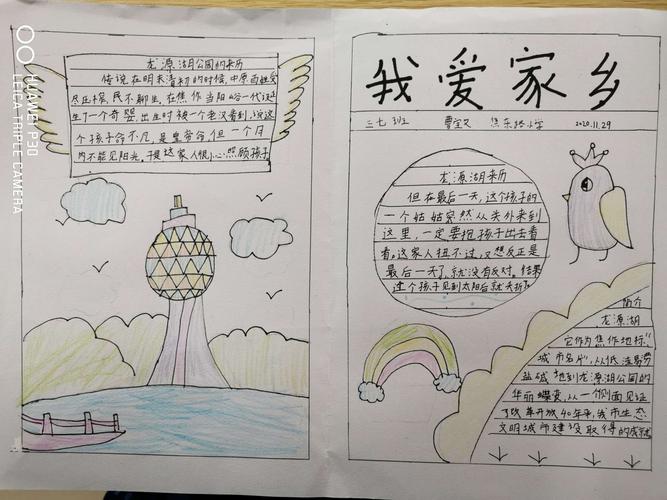 龙源湖公园的来历
传说在明末清初的时候,中原百姓受
尽压榨,民不聊生,在焦作当阳峪一代诞
生了一个奇婴,出生时被一个老汉看到,说这
个孩子命不凡,是皇帝命,但一个月
内不能见阳光。于是这家人很小心照顾孩子
我爱家乡
三七班
焦东路小学
2020.11.29
龙源湖来历
但在最后一天,这个孩子的
一个姑姑突然从关外来到
这里,一定要抱孩子出去看
看。这家人扭不过,又想反正是
最后一天了,就没有反对。结果
这个孩子见到太阳后就夭折了
简介
龙源湖
它作为焦作地标,
城市名片",从低洼易涝
盐碱地到龙源湖公园的
华丽蝶变,从一个侧面见证
了改革开放40年来,我市生态
文明城市建设取得的成就
HUAWEI P30
LEICA TRIPLE CAMERA